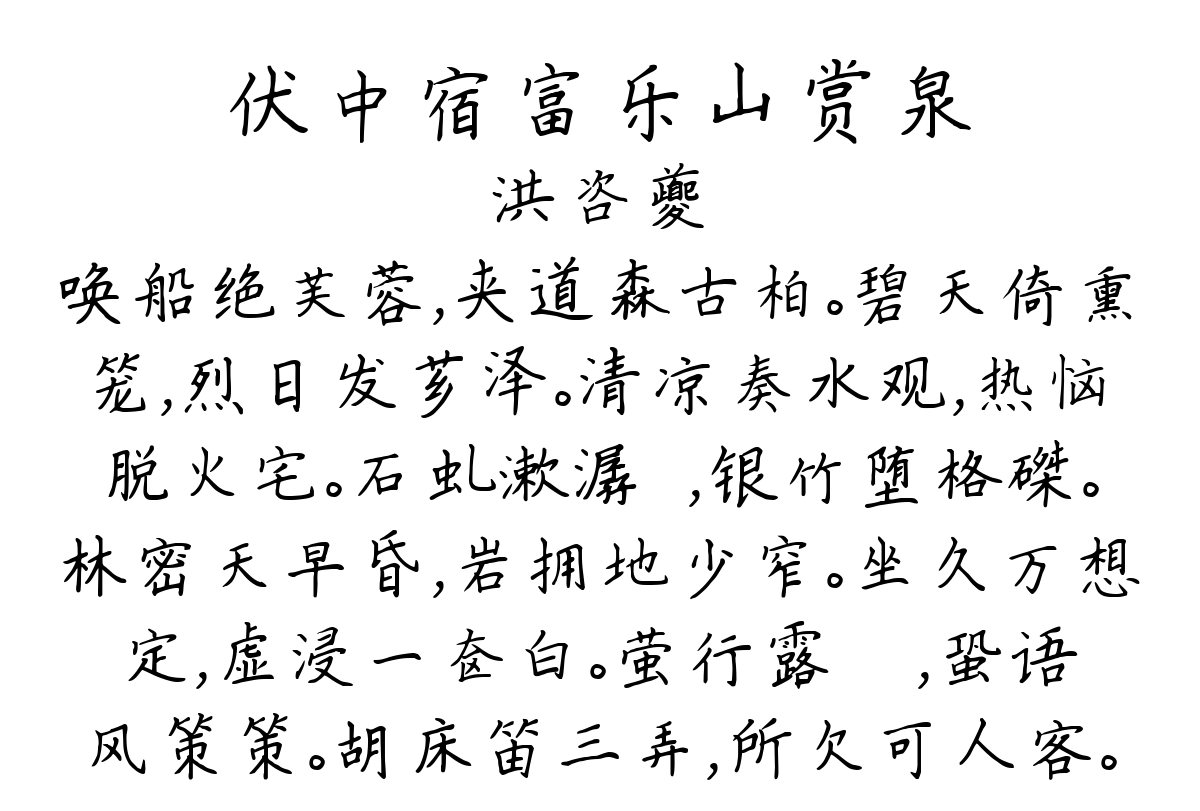 伏中宿富乐山赏泉
洪咨夔
唤船绝芙蓉,夹道森古柏。碧天倚熏
笼,烈日发芗泽。清凉奏水观,热恼
脱火宅。石虬漱潺 ,银竹堕格磔。
林密天早昏,岩拥地少窄。坐久万想
定,虚浸一奁白。萤行露 ,蛩语
风策策。胡床笛三弄,所欠可人客。